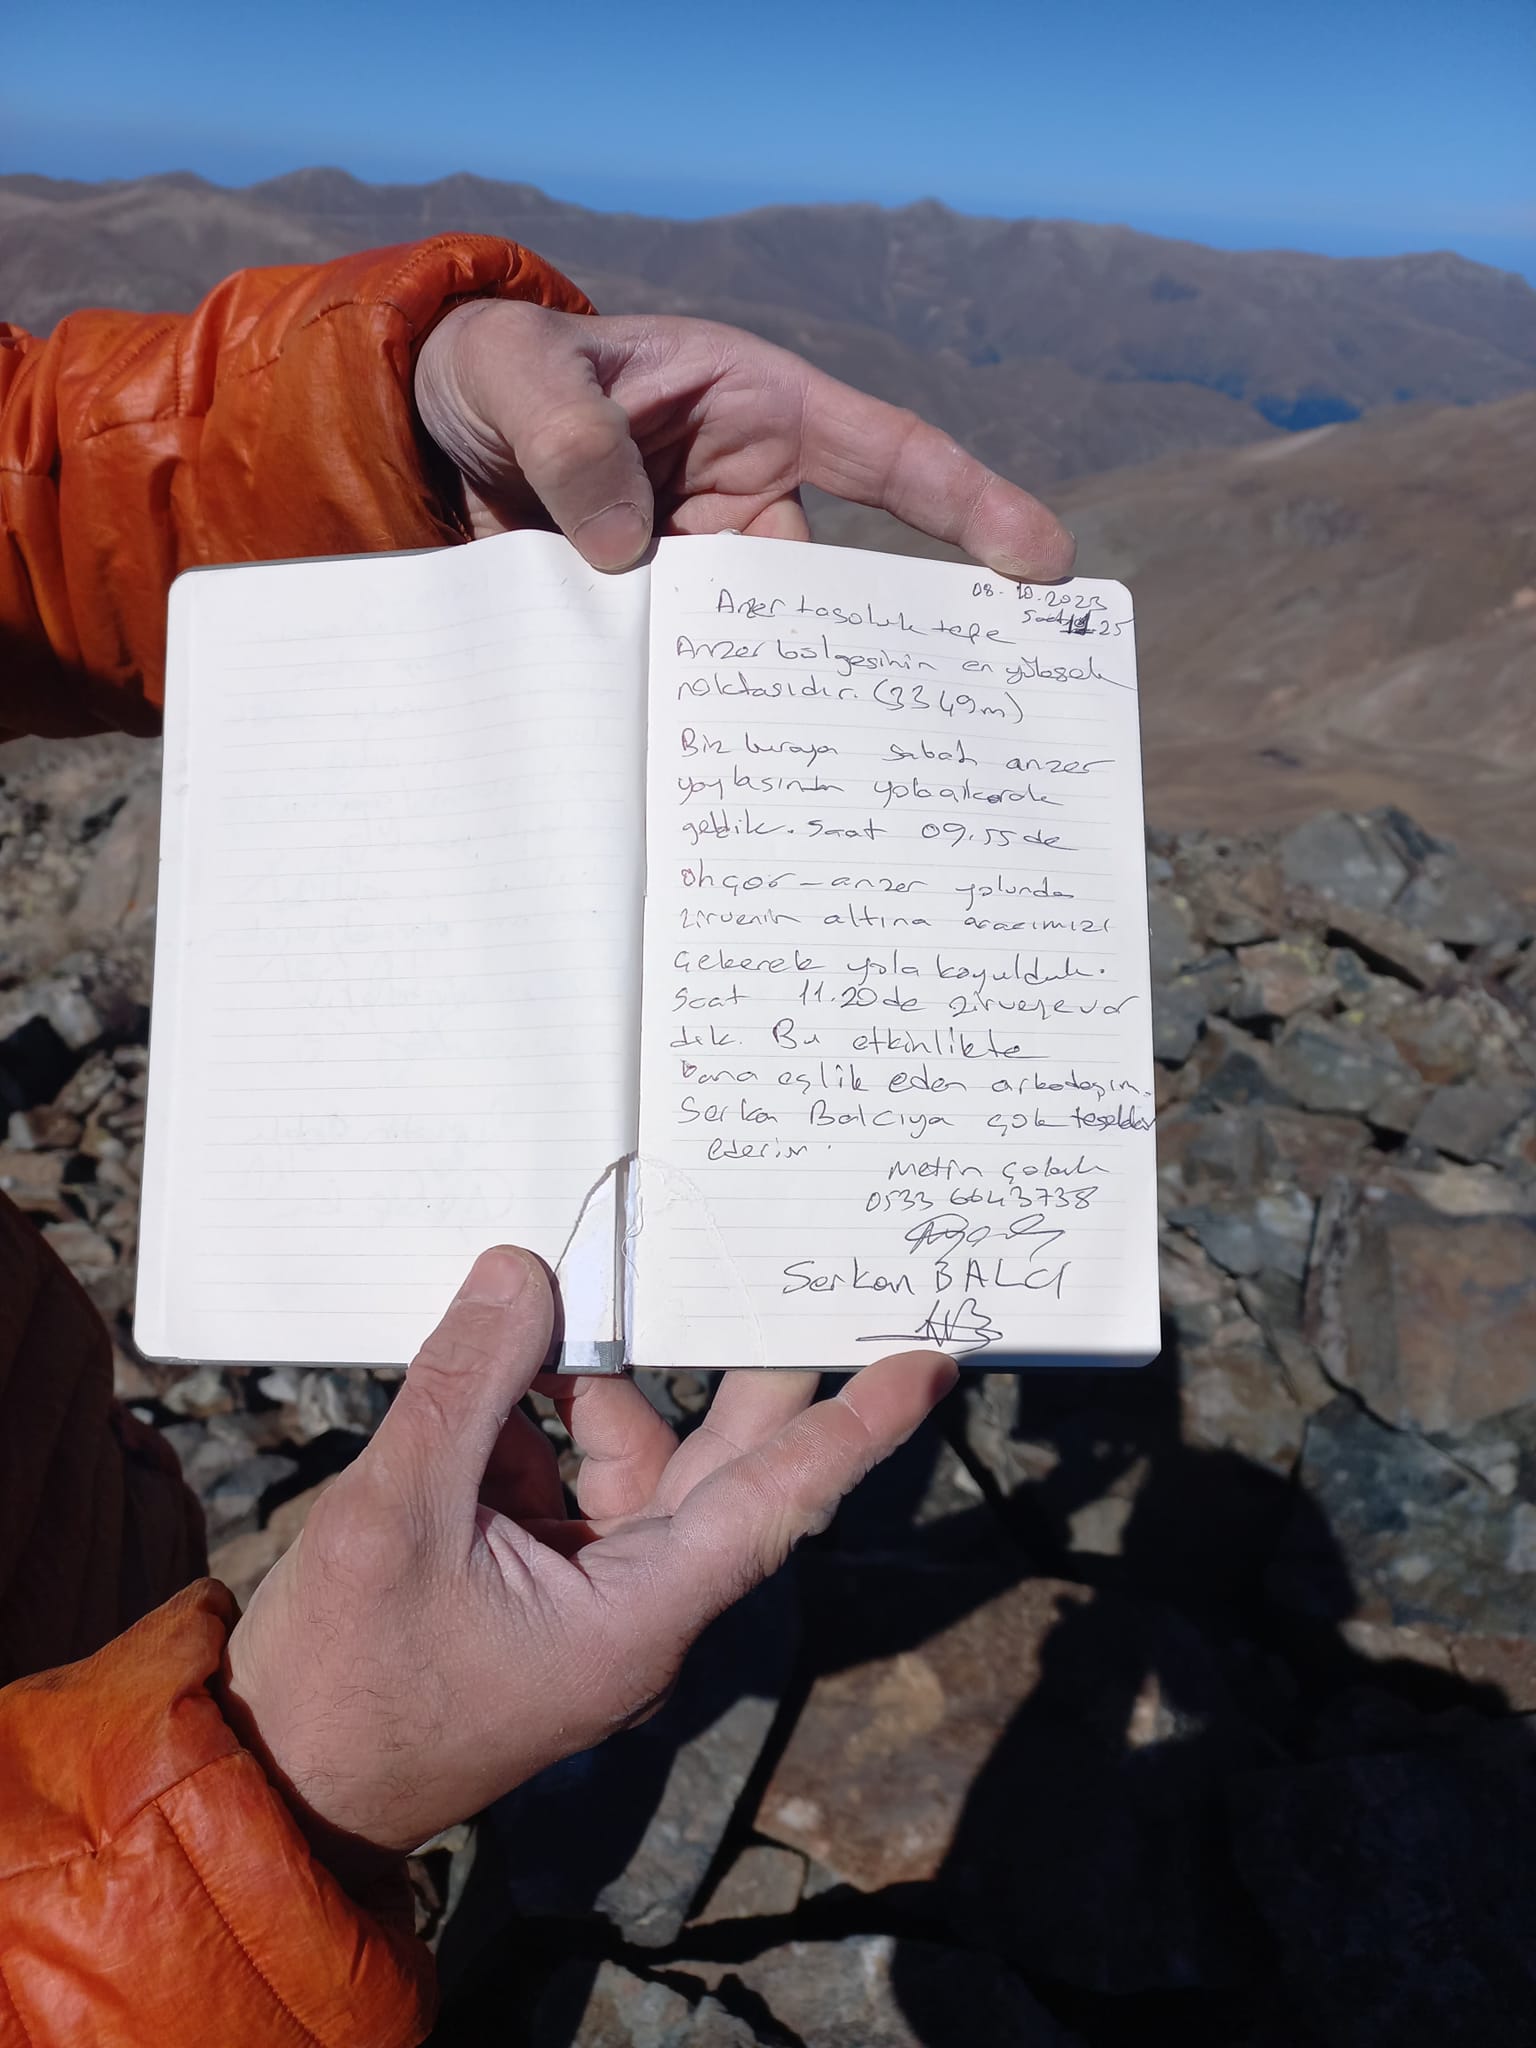 08.10.2023
Saat 11 25
Anzer tasoluk tepe
Anzer bölgesinin en yüksek
noktasıdır. (3349m)
Biz buraya sabah anzer
yaylasından yola çıkarak
geldik. Saat 09.55 de
anzer yolunda
zirvenin altına aracımızı
Çekerek yola koyulduk.
Saat 11.20 de zirveye var
dık. Bu etkinlikte
bana eşlik eden arkadaşım.
Serkan Balcıya çok
ederim.
Metin Çolak
0533 6643738
Serkan BALCI